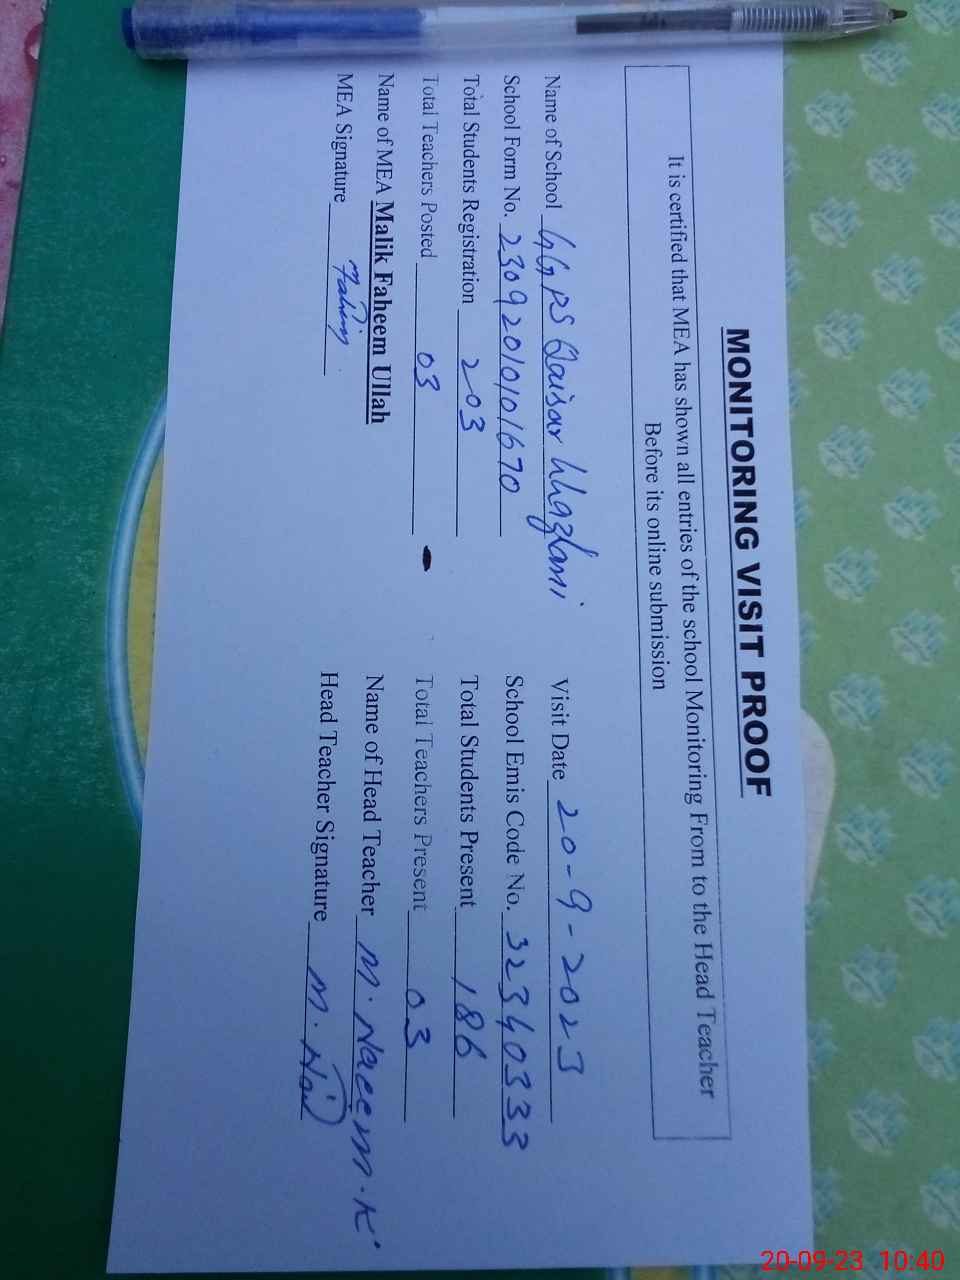 MONITORING VISIT PROOF
It is certified that MEA has shown all entries of the school Monitoring From to the Head Teacher
Before its online submission
Name of School GGPS Qaisar Khazlani Visit Date 20-9-2023
School Form No. 23092010101670 School Emis Code No. 32340333
Total Students Registration 203 Total Students Present 186
Total Teachers Posted 03 Total Teachers Present 03
Name of MEA Malik Faheem Ullah Name of Head Teacher M. Naeem. K
MEA Signature Fahim Head Teacher Signature M.
20-09-23 10:40